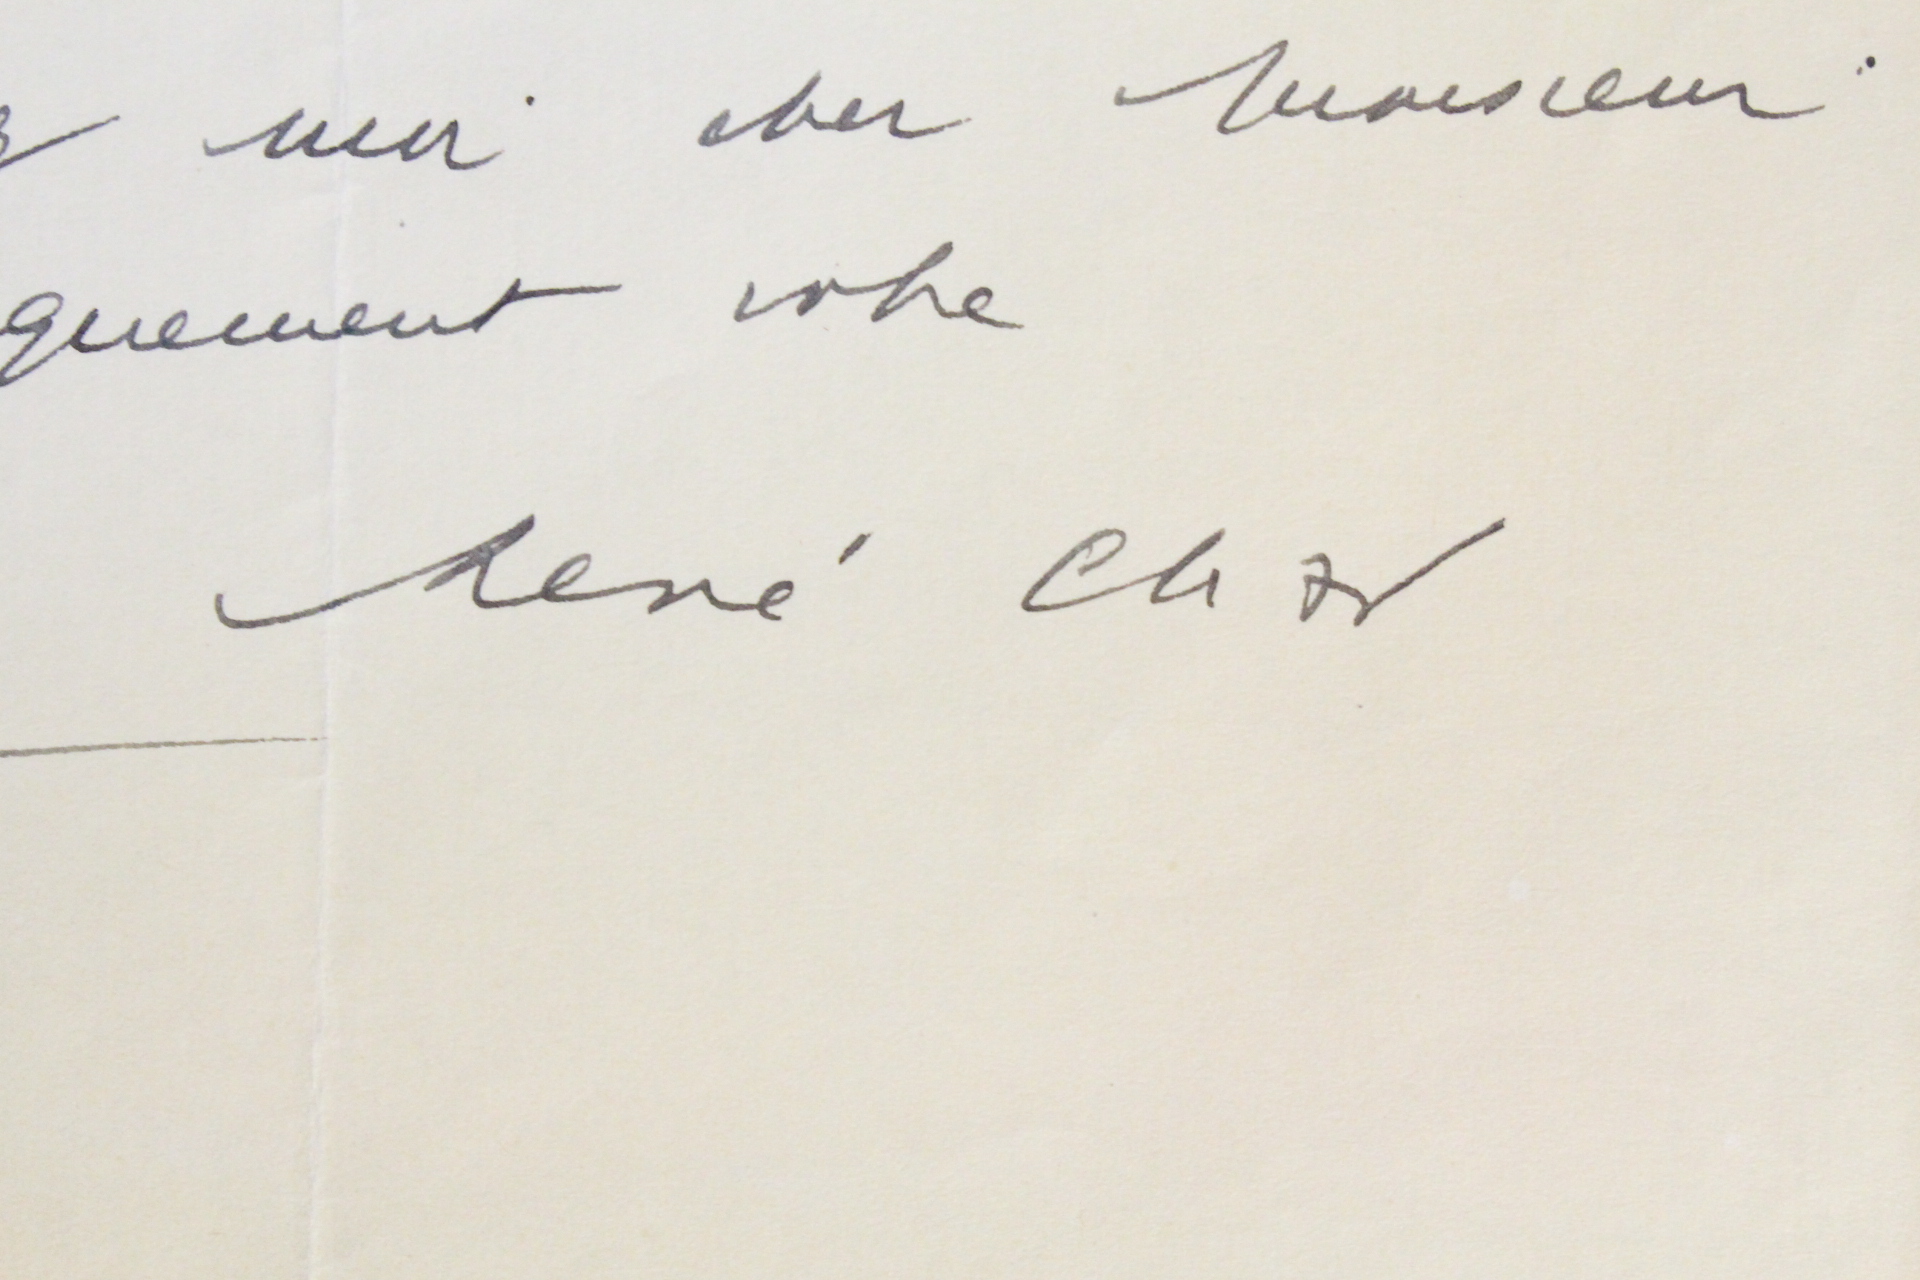 moi cher Monsieur
quement votre
René Char